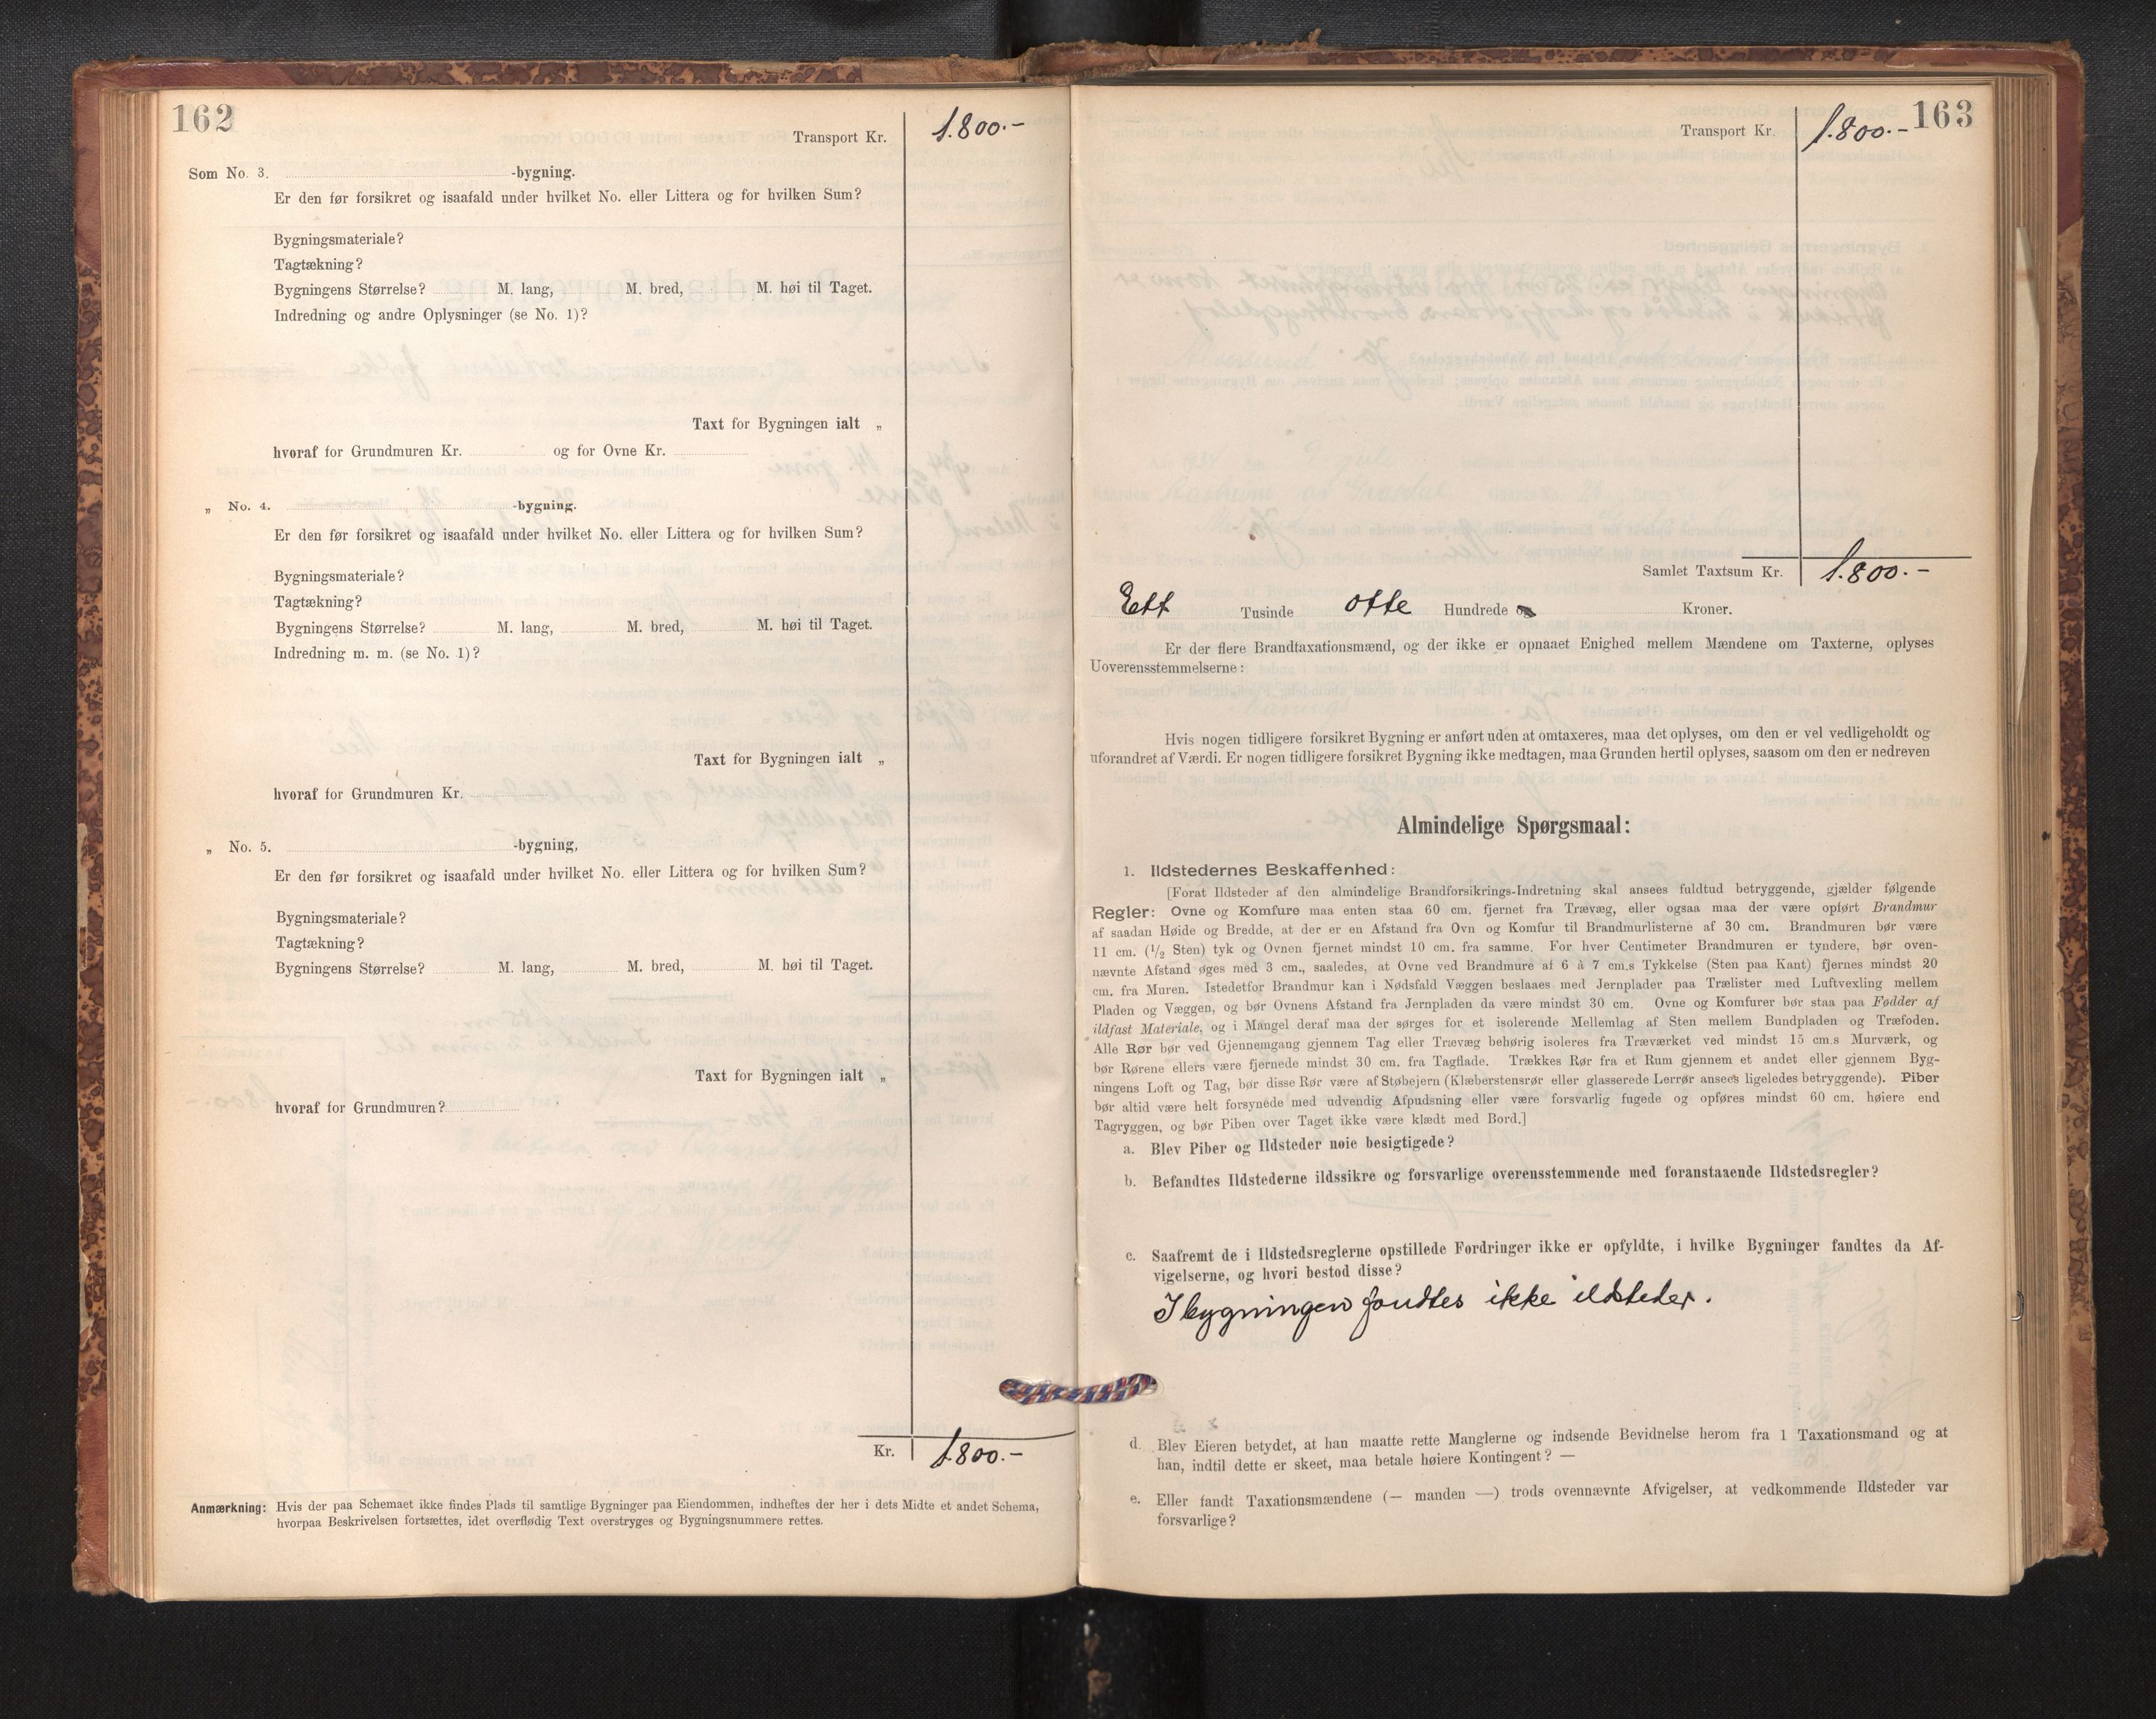 162
Transport Kr. 1.800.-
Som No. 3. -bygning.
Er den før forsikret og isaafald under hvilket No. eller Littera og for hvilken Sum?
Bygningsmateriale?
Tagtækning?
Bygningens Størrelse? M. lang, M. bred, M. høi til Taget.
Indredning og andre Oplysninger (se No. 1)?
Taxt for Bygningen ialt „
hvoraf for Grundmuren Kr. og for Ovne Kr.
„ No. 4. -bygning.
Er den før forsikret og isaafald under hvilket No. eller Littera og for hvilken Sum?
Bygningsmateriale?
Tagtækning?
Bygningens Størrelse? M. lang, M. bred, M. høi til Taget.
Indredning m. m. (se No. 1)?
Taxt for Bygningen ialt „
hvoraf for Grundmuren Kr.
„ No. 5. -bygning,
Er den før forsikret og isaafald under hvilket No. eller Littera og for hvilken Sum?
Bygningsmateriale?
Tagtækning?
Bygningens Størrelse? M. lang, M. bred, M. høi til Taget.
Taxt for Bygningen ialt „
hvoraf for Grundmuren?
Kr. 1.800.-
Anmærkning: Hvis der paa Schemaet ikke findes Plads til samtlige Bygninger paa Eiendommen, indheftes der her i dets Midte et andet Schema,
hvorpaa Beskrivelsen fortsættes, idet overflødig Text overstryges og Bygningsnummere rettes.
163
Transport Kr. 1.800.-
Samlet Taxtsum Kr. 1.800.-
Ett Tusinde otte Hundrede og Kroner.
Er der flere Brandtaxationsmænd, og der ikke er opnaaet Enighed mellem Mændene om Taxterne, oplyses
Uoverensstemmelserne:
Hvis nogen tidligere forsikret Bygning er anført uden at omtaxeres, maa det oplyses, om den er vel vedligeholdt og
uforandret af Værdi. Er nogen tidligere forsikret Bygning ikke medtagen, maa Grunden hertil oplyses, saasom om den er nedreven
Almindelige Spørgsmaal:
1. Ildstedernes Beskaffenhed:
[Forat Ildsteder af den almindelige Brandforsikrings-Indretning skal ansees fuldtud betryggende, gjælder følgende
Regler: Ovne og Komfure maa enten staa 60 cm. fjernet fra Trævæg, eller ogsaa maa der være opført Brandmur
af saadan Høide og Bredde, at der er en Afstand fra Ovn og Komfur til Brandmurlisterne af 30 cm. Brandmuren bør være
11 cm. (1/2 Sten) tyk og Ovnen fjernet mindst 10 cm. fra samme. For hver Centimeter Brandmuren er tyndere, bør oven-
nævnte Afstand øges med 3 cm., saaledes, at Ovne ved Brandmure af 6 à 7 cm.s Tykkelse (Sten paa Kant) fjernes mindst 20
cm. fra Muren. Istedetfor Brandmur kan i Nødsfald Væggen beslaaes med Jernplader paa Trælister med Luftvexling mellem
Pladen og Væggen, og bør Ovnens Afstand fra Jernpladen da være mindst 30 cm. Ovne og Komfurer bør staa paa Fødder af
ildfast Materiale, og i Mangel deraf maa der sørges for et isolerende Mellemlag af Sten mellem Bundpladen og Træfoden.
Alle Rør bør ved Gjennemgang gjennem Tag eller Trævæg behørig isoleres fra Træverket ved mindst 15 cm.s Murværk, og
bør Rørene ellers være fjernede mindst 30 cm. fra Tagflade. Trækkes Rør fra et Rum gjennem et andet eller gjennem Byg-
ningens Loft og Tag, bør disse Rør være af Støbejern (Klæberstensrør eller glasserede Lerrør ansees ligeledes betryggende). Piber
bør altid være helt forsynede med udvendig Afpudsning eller være forsvarlig fugede og opføres mindst 60 cm. høiere end
Tagryggen, og bør Piben over Taget ikke være klædt med Bord.]
a. Blev Piber og Ildsteder nøie besigtigede?
b. Befandtes Ildstederne ildssikre og forsvarlige overensstemmende med foranstaaende Ildstedsregler?
c. Saafremt de i Ildstedsreglerne opstillede Fordringer ikke er opfyldte, i hvilke Bygninger fandtes da Af-
vigelserne, og hvori bestod disse?
I bygningen fandtes ikke ildsteder.
d. Blev Eieren betydet, at han maatte rette Manglerne og indsende Bevidnelse herom fra 1 Taxationsmand og at
han, indtil dette er skeet, maa betale høiere Kontingent? —
e. Eller fandt Taxationsmændene (— manden —) trods ovennævnte Afvigelser, at vedkommende Ildsteder var
forsvarlige?